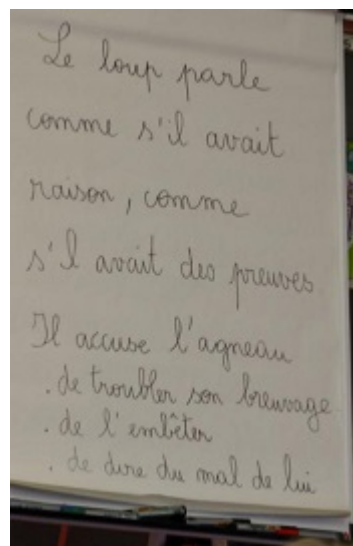 Le loup parle
comme s'il avait
raison, comme
s'il avait des preuves
Il accuse l'agneau
. de troubler son breuvage
. de l'embêter
. de dire du mal de lui